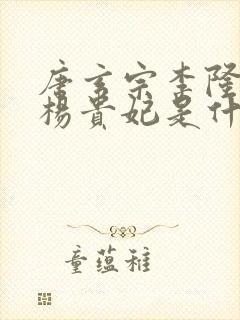 唐玄宗李隆
杨贵妃是什
童蕴稚